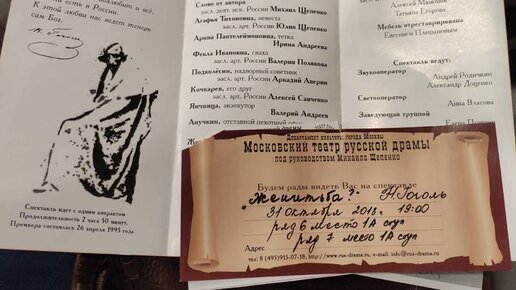 полюбит и всё,
есть в России.
К этой любви нас ведет теперь
сам Бог.
Н. Гоголь
Спектакль идет с одним антрактом
Продолжительность 2 часа 50 минут.
Премьера состоялась 26 апреля 1995 года
Слово от автора
засл. деят. иск. России Михаил Щепенко
Агафья Тихоновна, невеста
засл. арт. России Юлия Щепенко
Арина Пантелеймоновна, тетка
Ирина Андреева
Фекла Ивановна, сваха
засл. арт. России Валерия Полякова
Подколёсин, надворный советник
засл. арт. России Аркадий Аверин
Кочкарев, его друг
засл. арт. России Алексей Савченко
Яичница, экзекутор
Валерий Андреев
Анучкин, отставной пехотный
Алексей Мамонов
Татьяна Егорова.
Мебель отреставрирована
Евгением Плешановым.
Спектакль ведут:
Звукооператор
Андрей Родичкин
Александр Доценко
Светооператор
Анна Власова
Заведующая труппой
Елена
Департамент культуры города Москвы
Московский театр русской драмы
под руководством Михаила Щепенко
Будем рады видеть Вас на спектакле
"Женитьба?" Н. Гоголь
31 октября 2018г. 19:00
ряд 6 место 1А ступ
ряд 7 место 1А ступ
Адрес
тел: 8 (495)915-07-18, http://www.rus-drama.ru, e-mail: info@rus-drama.ru